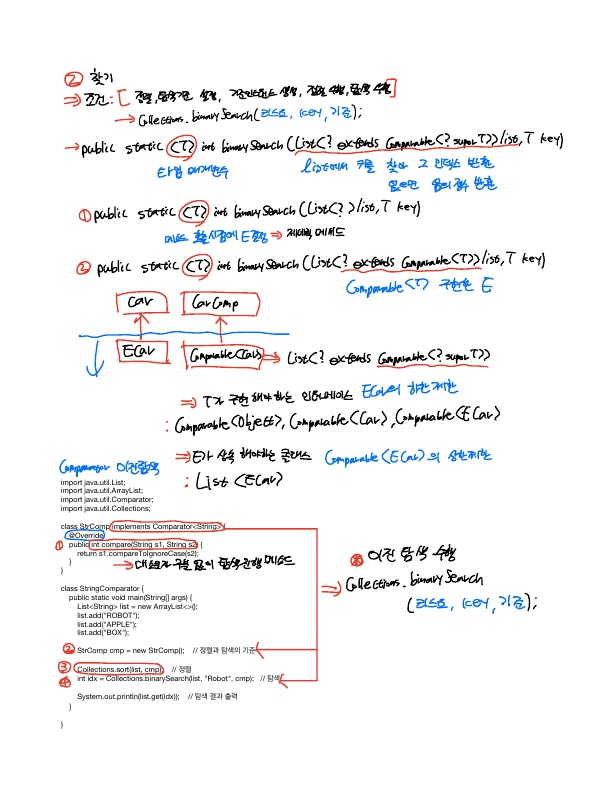 ② 찾기
⇒ 조건 : [ 정렬, 탐색기준 설정, 기준인스턴스 생성, 정렬 수행, 탐색 수행 ]
→ Collections.binarySearch(리스트, key, 기준);
→ public static <T> int binarySearch (List<? extends Comparable<? super T>> list, T key)
타입 매개변수 list에서 키를 찾아 그 인덱스 반환
없으면 음의 정수 반환
① public static <T> int binarySearch (List<?> list, T key)
메서드 호출시점에 E결정 ⇒ 제네릭 메서드
② public static <T> int binarySearch (List<? extends Comparable<T>> list, T key)
Comparable<T> 구현한 E
Car CarComp
ECar Comparable<Car> ⇒ List<? extends Comparable<? super T>>
⇒ T가 구현해야하는 인터페이스 ECar의 하한제한
: Comparable<Object>, Comparable<Car>, Comparable<ECar>
⇒ E가 상속해야하는 클래스 Comparable<ECar>의 상한제한
: List<ECar>
Comparator 이진탐색
import java.util.List;
import java.util.ArrayList;
import java.util.Comparator;
import java.util.Collections;
class StrComp implements Comparator<String> {
@Override
① public int compare(String s1, String s2) {
return s1.compareToIgnoreCase(s2);
}
→ 대소문자 구별 없이 탐색진행 메서드
}
class StringComparator {
public static void main(String[] args) {
List<String> list = new ArrayList<>();
list.add("ROBOT");
list.add("APPLE");
list.add("BOX");
② StrComp cmp = new StrComp(); // 정렬과 탐색의 기준
③ Collections.sort(list, cmp); // 정렬
④ int idx = Collections.binarySearch(list, "Robot", cmp); // 탐색
System.out.println(list.get(idx)); // 탐색 결과 출력
}
}
※ 이진 탐색 수행
⇒ Collections.binarySearch
(리스트, key, 기준);